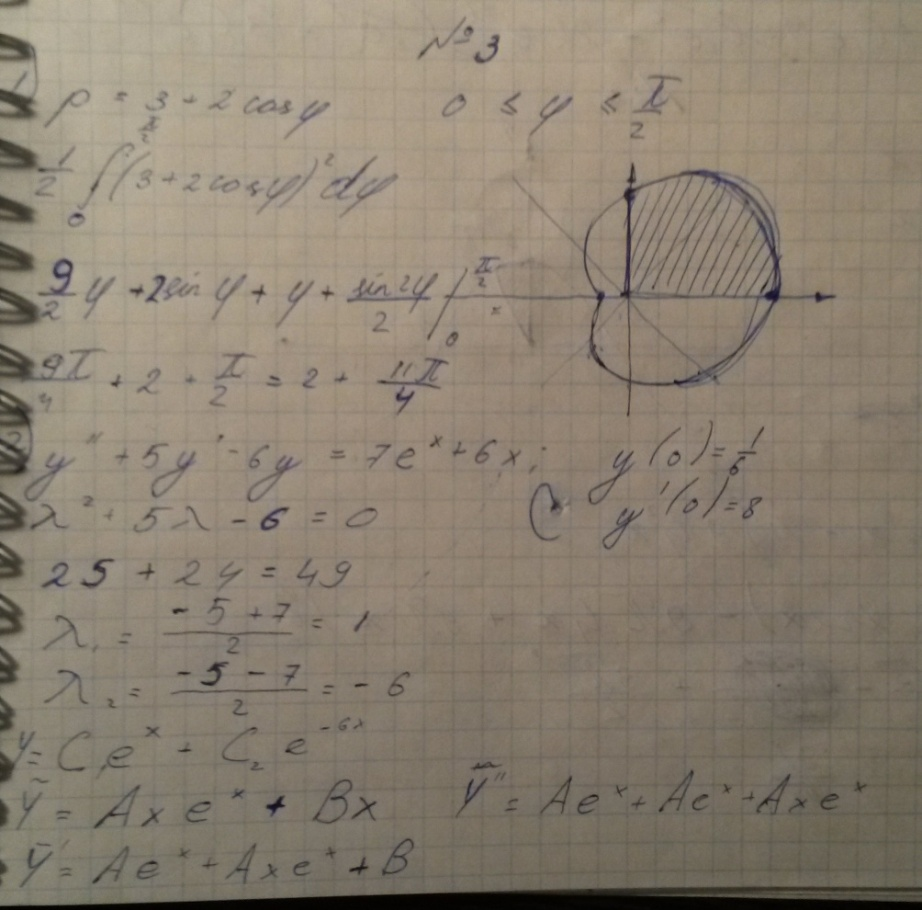 № 3
1) ρ = 3 + 2 cos φ    0 ≤ φ ≤ π/2
1/2 ∫₀^{π/2} (3 + 2cos φ)² dφ
9/2 φ + 2sin φ + φ + sin 2φ / 2 |₀^{π/2}
9π/4 + 2 + π/2 = 2 + 11π/4
2) y'' + 5y' - 6y = 7eˣ + 6x;    y(0) = 1/6
λ² + 5λ - 6 = 0    y'(0) = 8
25 + 24 = 49
λ₁ = (-5 + 7)/2 = 1
λ₂ = (-5 - 7)/2 = -6
Y = C₁eˣ + C₂e⁻⁶ˣ
Ỹ = Axeˣ + Bx    Ỹ'' = Aeˣ + Aeˣ + Axeˣ
Ỹ' = Aeˣ + Axeˣ + B